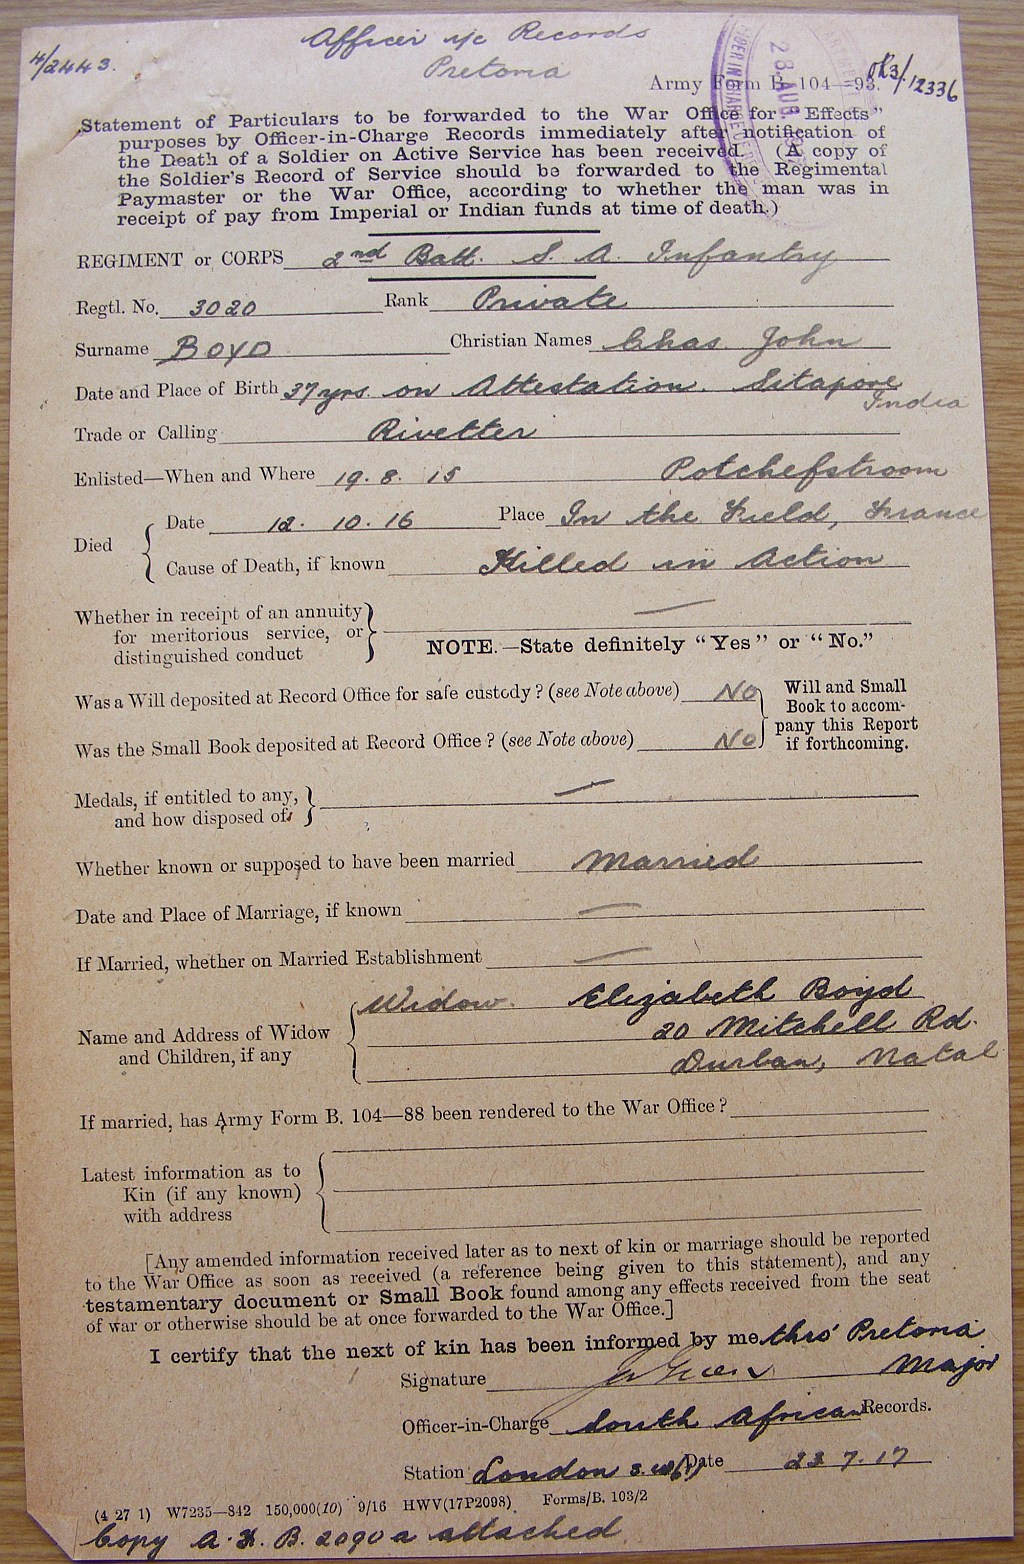 Officer i/c Records
4/2443.
Pretoria
Army Form B. 104—93.
28 AUG
/12336
Statement of Particulars to be forwarded to the War Office for "Effects"
purposes by Officer-in-Charge Records immediately after notification of
the Death of a Soldier on Active Service has been received. (A copy of
the Soldier's Record of Service should be forwarded to the Regimental
Paymaster or the War Office, according to whether the man was in
receipt of pay from Imperial or Indian funds at time of death.)
REGIMENT or CORPS 2nd Batt. S. A. Infantry
Regtl. No. 3020 Rank Private
Surname BOYD Christian Names Chas. John
Date and Place of Birth 37 yrs. on Attestation. Sitapore
India
Trade or Calling Rivetter
Enlisted—When and Where 19. 8. 15 Potchefstroom
Died { Date 12. 10. 16 Place In the Field, France
Cause of Death, if known Killed in Action
Whether in receipt of an annuity
for meritorious service, or
distinguished conduct } —
NOTE.—State definitely "Yes" or "No."
Was a Will deposited at Record Office for safe custody? (see Note above) No
Was the Small Book deposited at Record Office? (see Note above) No
Will and Small
Book to accom-
pany this Report
if forthcoming.
Medals, if entitled to any,
and how disposed of } —
Whether known or supposed to have been married Married
Date and Place of Marriage, if known —
If Married, whether on Married Establishment —
Name and Address of Widow
and Children, if any
Widow. Elizabeth Boyd
20 Mitchell Rd.
Durban, Natal
If married, has Army Form B. 104—88 been rendered to the War Office?
Latest information as to
Kin (if any known)
with address
[Any amended information received later as to next of kin or marriage should be reported
to the War Office as soon as received (a reference being given to this statement), and any
testamentary document or Small Book found among any effects received from the seat
of war or otherwise should be at once forwarded to the War Office.]
I certify that the next of kin has been informed by me thro' Pretoria
Signature Major
Officer-in-Charge South African Records.
Station London S.W.(1) Date 23 7. 17
(4 27 1) W7235—842 150,000(10) 9/16 HWV(17P2098) Forms/B. 103/2
Copy A. F. B. 2090a attached